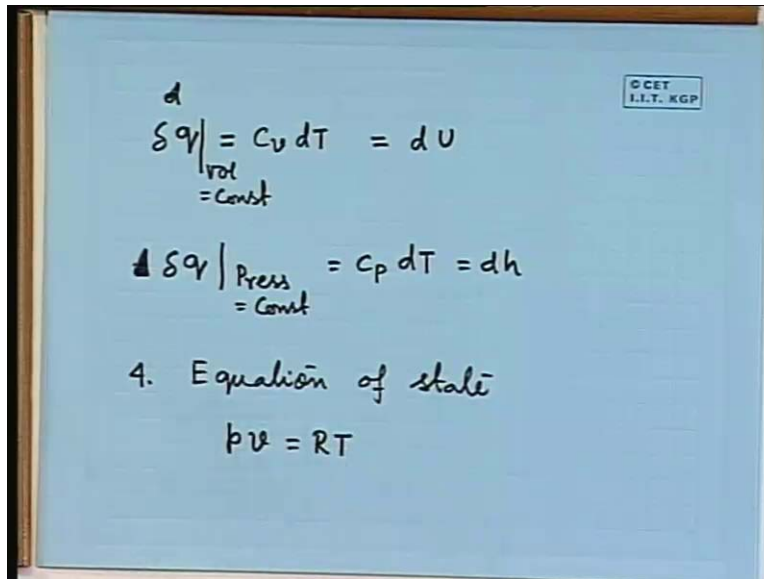 © CET
I.I.T. KGP
d
δq|vol = const = Cv dT = dU
δq|Press = Const = Cp dT = dh
4. Equation of state
pv = RT